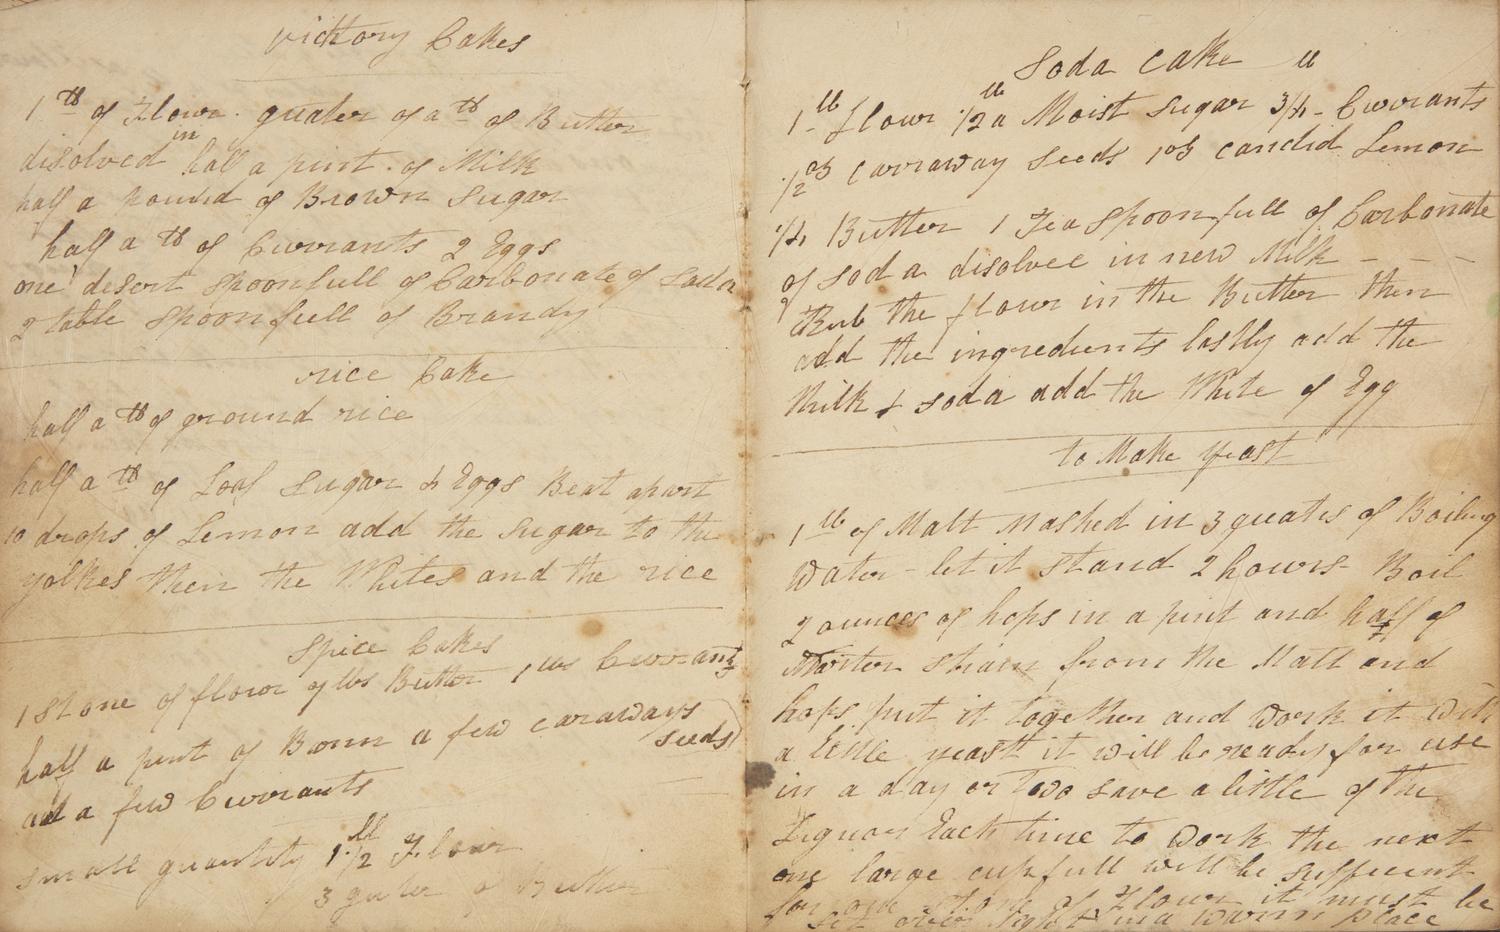 victory Cakes
1 lb of Flowr. quater of a lb of Butter
disolved in half a pint of Milk
half a pound of Brown Sugar
half a lb of Currants 2 Eggs
one desert spoonfull of Carbonate of Soda
2 table spoonfull of Brandy
rice Cake
half a lb of ground rice
half a lb of Loaf Sugar 4 Eggs Beat apart
10 drops of Lemon add the Sugar to the
yolkes then the Whites and the rice
Spice Cakes
1 Stone of flowr lbs Butter 1 lbs Currants
half a pint of a few caraways
seeds
a few Currants
small quantity 1 1/2 lb Flowr
3 quter of Butter
Soda Cake
1 lb flour 1/2 lb a Moist Sugar 3/4 lb Currants
1/2 oz Carraway Seeds 1 oz candid Lemon
1/4 Butter 1 Tea Spoonfull of Carbonate
of soda disolvee in new Milk - - -
Rub the flowr in the Butter then
add the ingredients lastly add the
Milk & soda add the White of Egg
to Make yeast
1 lb of Malt Mashed in 3 quats of Boiling
Water - let it stand 2 hours Boil
2 ounces of hops in a pint and half of
Water strain from the Malt and
hops put it together and Work it With
a little yeast it will be ready for use
in a day or two save a little of the
Liquor Each time to Work the next
one large cupfull will be suffecent
for one stone of Flowr it must be
set over Night in a warm place